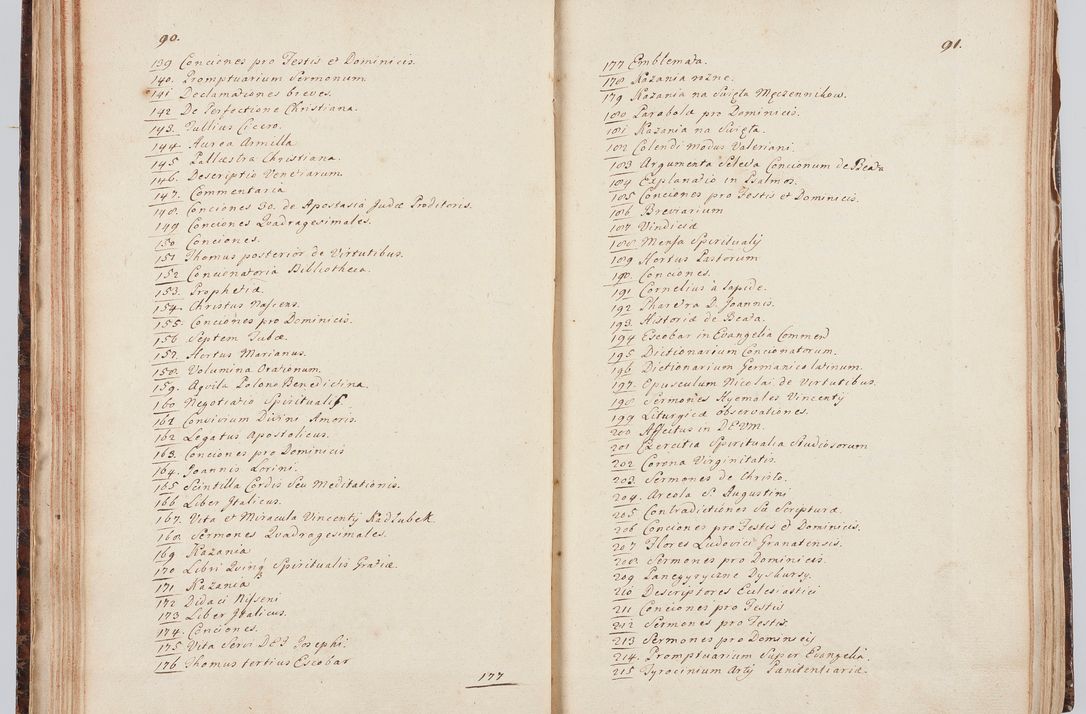 90.
139 Conciones pro Festis et Dominicis.
140. Promptuarium Sermonum.
141 Declamationes breves.
142 De Perfectione Christiana.
143. Tullius Cicero.
144. Aurea Armilla
145 Pallæstra Christiana.
146. Descriptio Venetiarum
147. Commentaria
148. Conciones 30. de Apostasia Judæ Proditoris.
149 Conciones Quadragesimales.
150 Conciones.
151. Thomus posterior de Virtutibus.
152 Concionatoria Bibliotheca.
153. Prophetiæ
154. Christus Nascens.
155. Conciones pro Dominicis.
156 Septem Tubæ.
157 Hortus Marianus.
158. Volumina Orationum.
159. Aqvila Polono Benedictina
160 Negotiatio Spiritualis
161 Convivium Divini Amoris.
162 Legatus Apostolicus.
163. Conciones pro Dominicis
164. Joannis Lorini.
165 Scintilla Cordis Seu Meditationis.
166 Liber Italicus.
167. Vita et Miracula Vincentij Kadłubek
168. Sermones Quadragesimales.
169 Kazania
170 Libri Quinq Spiritualis Gratiæ.
171 Kazania
172 Didaci Nisseni
173 Liber Italicus.
174. Conciones.
175 Vita Servi DEI Josephi.
176 Thomus tertius Escobar
177
91.
177 Emblemata.
178 Kazania rozne.
179 Kazania na Swięta Męczennikow.
180 Parabola pro Dominicis.
181 Kazania na Swięta.
182 Colendi modus Valeriani.
183 Argumenta Selecta Concionum de Beata
184 Explanatio in Psalmos.
185 Conciones pro Festis et Dominicis.
186 Breviarium
187 Vindiciæ
188 Mensa Spiritualij
189 Hortus Pastorum
190. Conciones.
191 Cornelius à Lapide.
192 Pharetra D. Joannis.
193. Historiæ de Beata.
194 Escobar in Evangelia Commen
195 Dictionarium Concionatorum.
196 Dictionarium Germanico latinum.
197. Opusculum Nicolai de Virtutibus.
198 Sermones Hyemales Vincentij
199 Liturgicæ observationes.
200 Affectus in DEVM.
201 Exercitia Spiritualia Studiosorum
202 Corona Virginitatis.
203 Sermones de Christo.
204. Areola S. Augustini
205 Contradictiones Sæ Scripturæ.
206 Conciones pro Festis et Dominicis.
207 Flores Ludovici Granatensis.
208. Sermones pro Dominicis.
209 Panegyryczne Dyskursy.
210 Descriptores Eclesiastici
211 Conciones pro Festis
212 Sermones pro Festis.
213 Sermones pro Dominicis
214. Promptuarium Super Evangelia.
215 Tyrocinium Artij Pænitentiariæ.